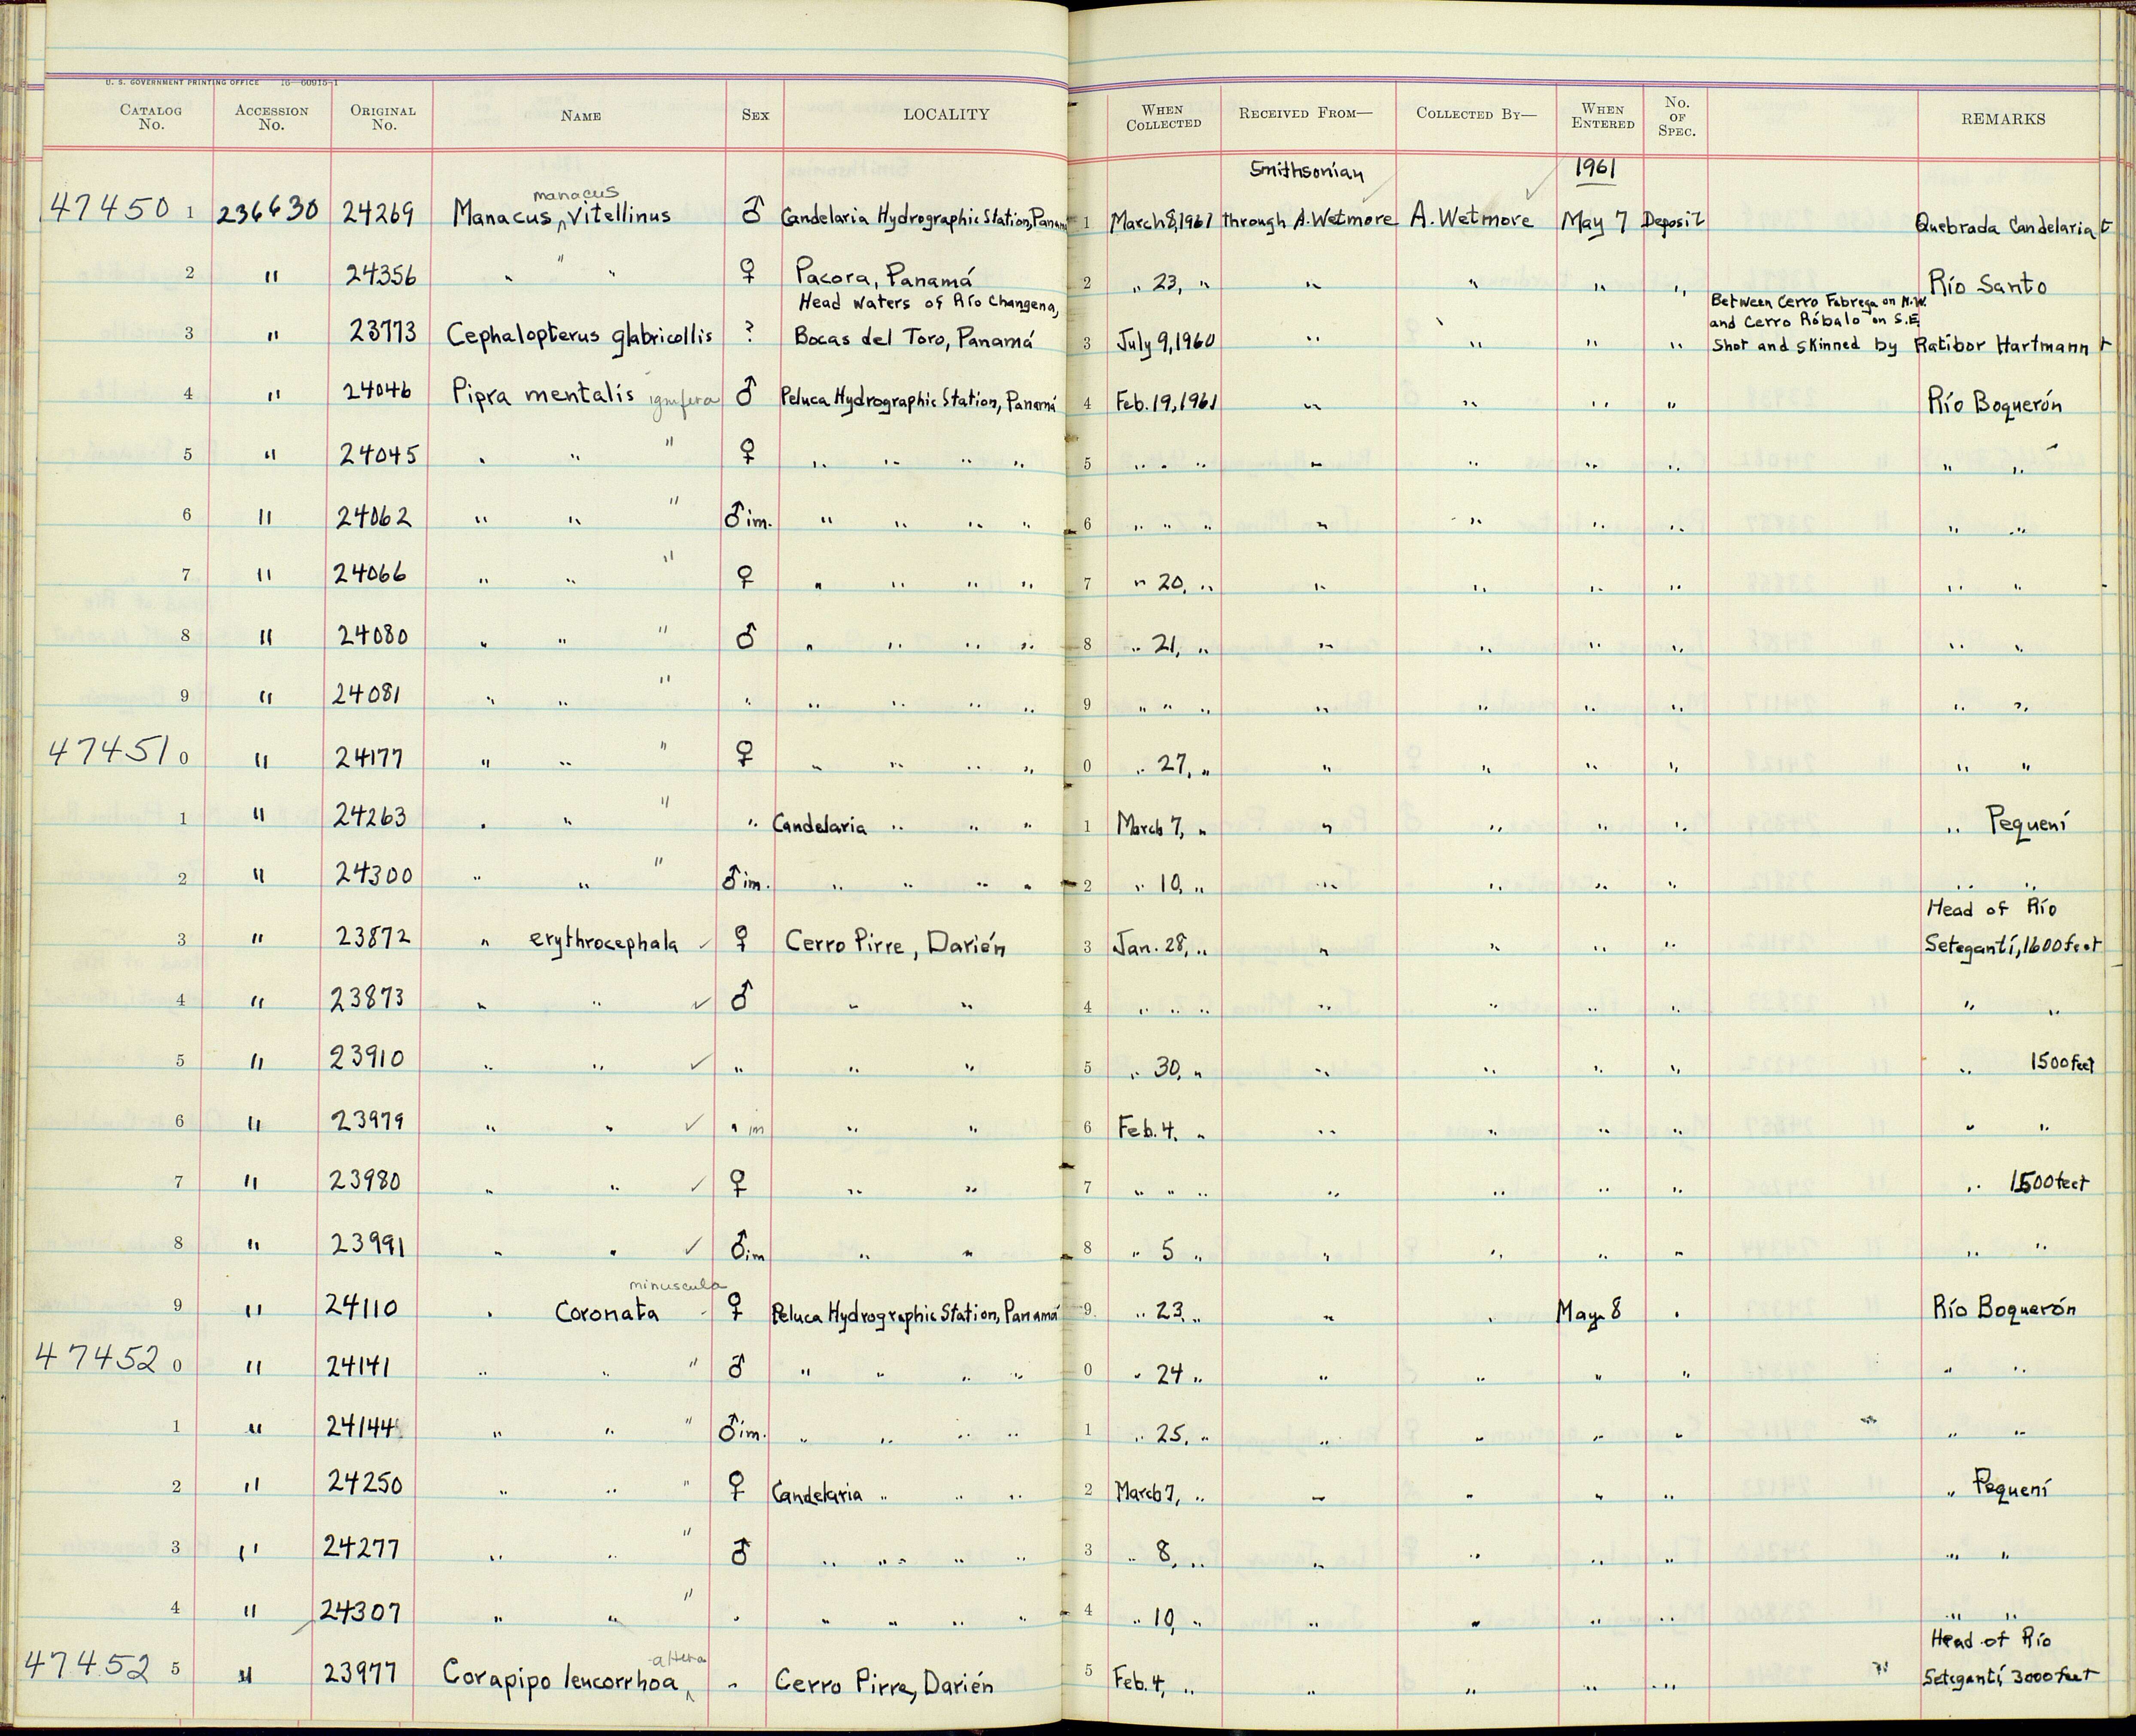 U. S. GOVERNMENT PRINTING OFFICE 16—60915-1
CATALOG No. ACCESSION No. ORIGINAL No. NAME SEX LOCALITY WHEN COLLECTED RECEIVED FROM— COLLECTED BY— WHEN ENTERED No. OF SPEC. REMARKS
Smithsonian 1961
manacus
47450 1 236630 24269 Manacus ^ vitellinus ♂ Candelaria Hydrographic Station, Panamá 1 March 8, 1961 through A. Wetmore A. Wetmore May 7 Deposit Quebrada Candelaria t
2 " 24356 " " " ♀ Pacora, Panamá 2 " 23, " " " " " Río Santo
Head waters of Río Changena, Between Cerro Fabrega on N.W.
and Cerro Róbalo on S.E.
3 " 23773 Cephalopterus glabricollis ? Bocas del Toro, Panamá 3 July 9, 1960 " " " " Shot and skinned by Ratibor Hartmann t
4 " 24046 Pipra mentalis ignifera ♂ Peluca Hydrographic Station, Panamá 4 Feb. 19, 1961 " " " " Río Boquerón
5 " 24045 " " " ♀ " " " " 5 " " " " " " " " "
6 " 24062 " " " ♂ im. " " " " 6 " " " " " " " " "
7 " 24066 " " " ♀ " " " " 7 " 20, " " " " " " "
8 " 24080 " " " ♂ " " " " 8 " 21, " " " " " " "
9 " 24081 " " " " " " " " 9 " " " " " " " " "
47451 0 " 24177 " " " ♀ " " " " 0 " 27, " " " " " " "
1 " 24263 " " " " Candelaria " " " 1 March 7, " " " " " " Pequení
2 " 24300 " " " ♂ im. " " " " 2 " 10, " " " " " " "
Head of Río
3 " 23872 " erythrocephala ✓ ♀ Cerro Pirre, Darién 3 Jan. 28, " " " " " Setegantí, 1600 feet
4 " 23873 " " ✓ ♂ " " 4 " " " " " " " " "
5 " 23910 " " ✓ " " " 5 " 30, " " " " " " 1500 feet
6 " 23979 " " ✓ " im " " 6 Feb. 4, " " " " " " "
7 " 23980 " " ✓ ♀ " " 7 " " " " " " " " 1500 feet
8 " 23991 " " ✓ ♂ im " " 8 " 5 " " " " " " "
minuscula
9 " 24110 " Coronata ♀ Peluca Hydrographic Station, Panamá 9 " 23, " " " May 8 " Río Boquerón
47452 0 " 24141 " " " ♂ " " " " 0 " 24 " " " " " " "
1 " 24144 " " " ♂ im. " " " " 1 " 25, " " " " " " "
2 " 24250 " " " ♀ Candelaria " " " 2 March 7, " " " " " " Pequení
3 " 24277 " " " ♂ " " " " 3 " 8, " " " " " " "
4 " 24307 " " " " " " " " 4 " 10, " " " " " " "
altera Head of Río
47452 5 " 23977 Corapipo leucorrhoa ^ " Cerro Pirre, Darién 5 Feb. 4, " " " " " Setegantí, 3000 feet